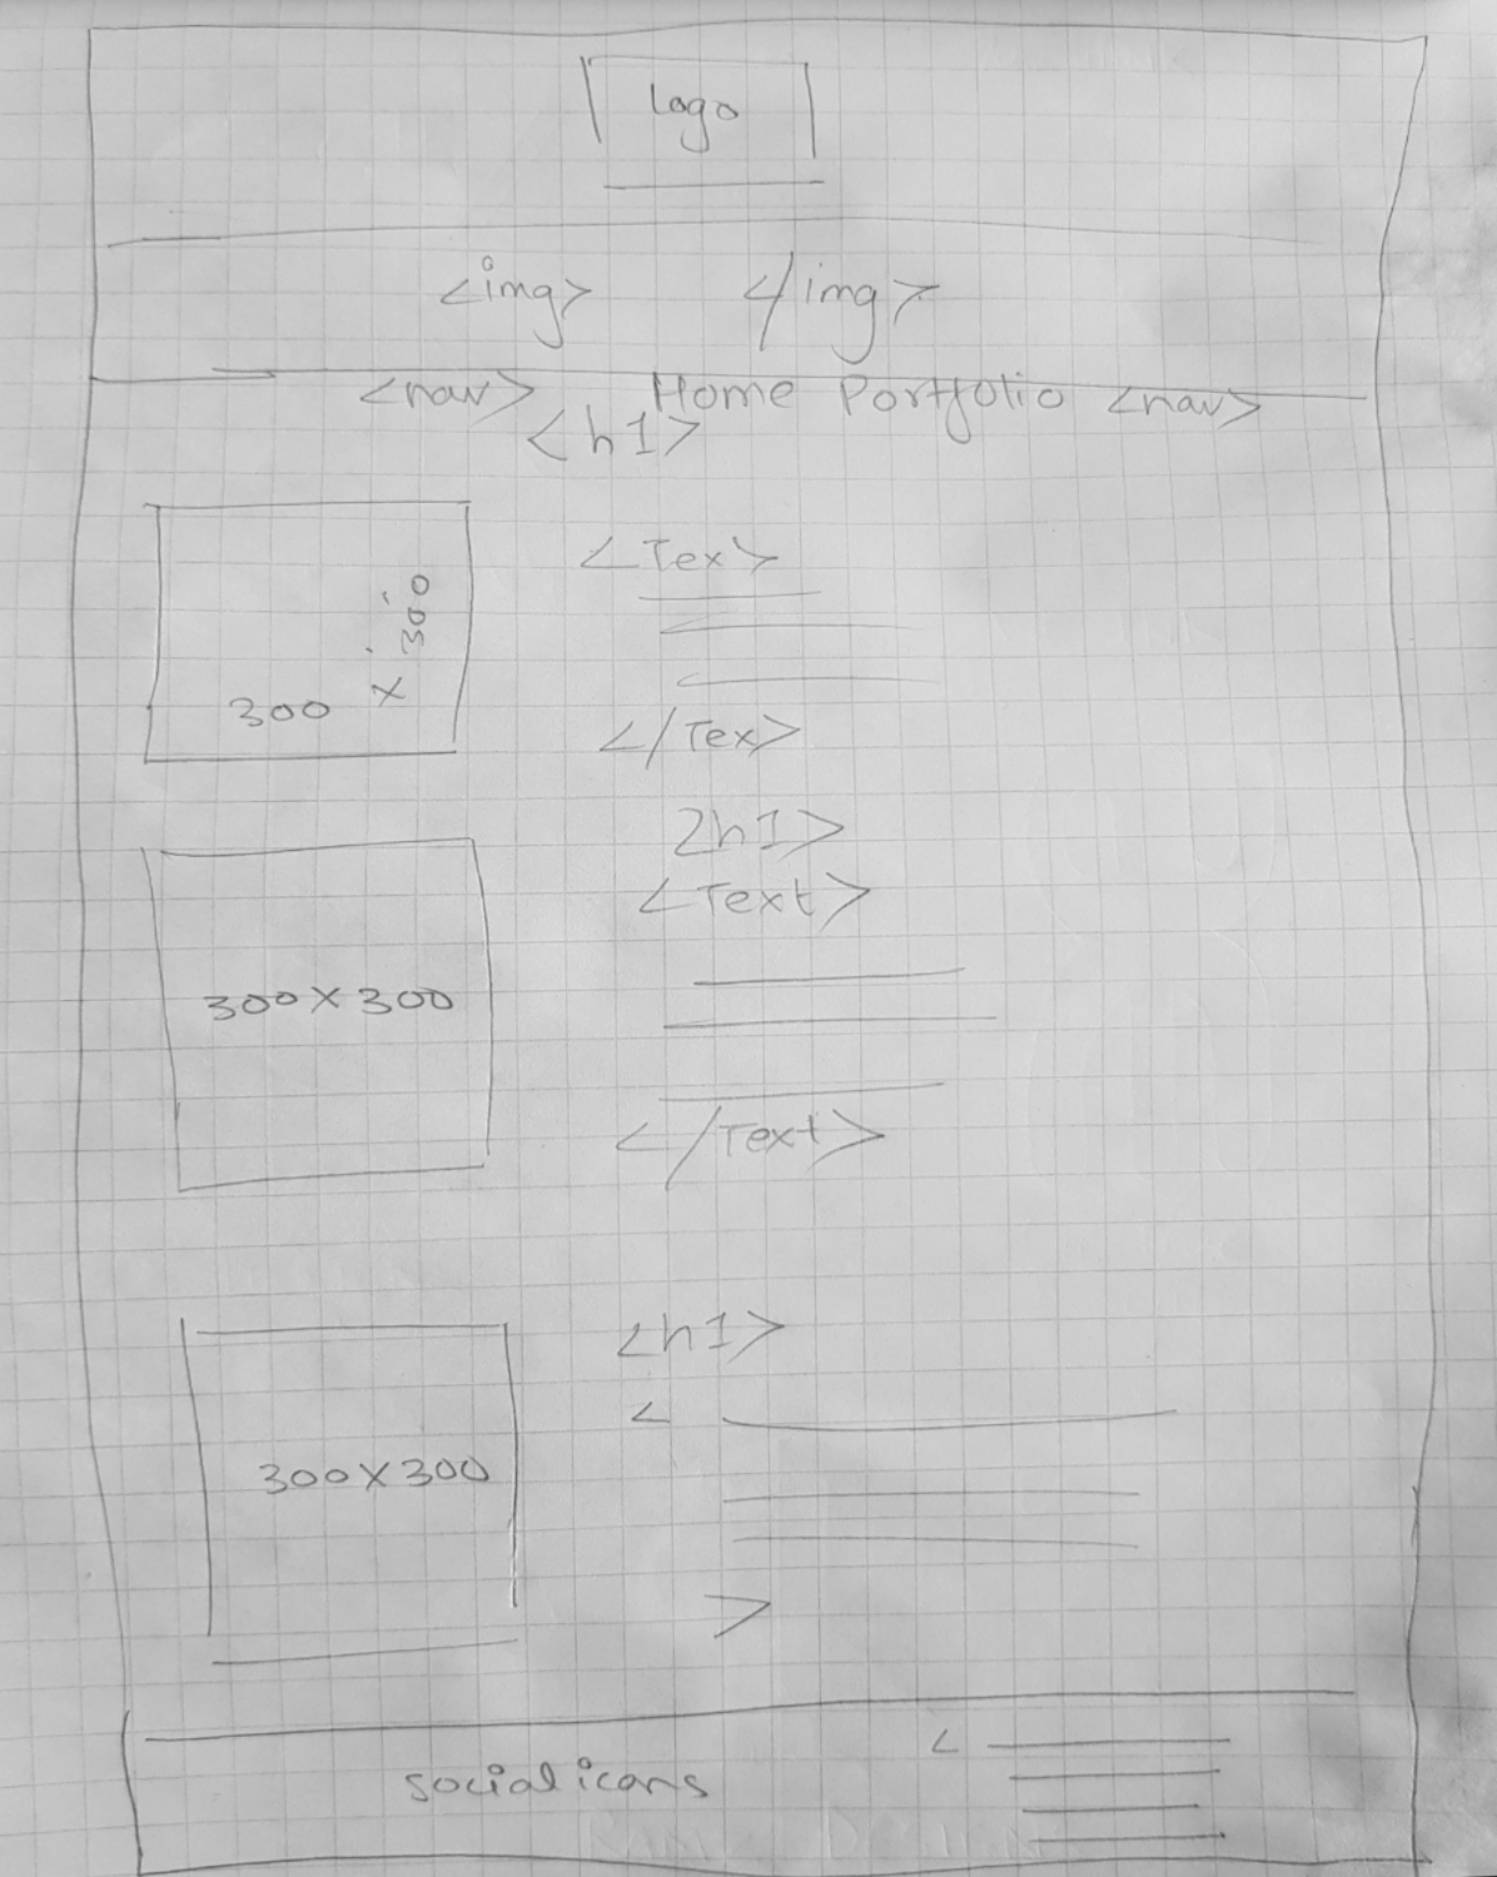 Logo
<img> </img>
<nav> Home Portfolio <nav>
<h1>
<Tex>
300 x 300
</Tex>
<h1>
<Text>
300X300
</Text>
<h1>
<
300X300
>
<
social icons